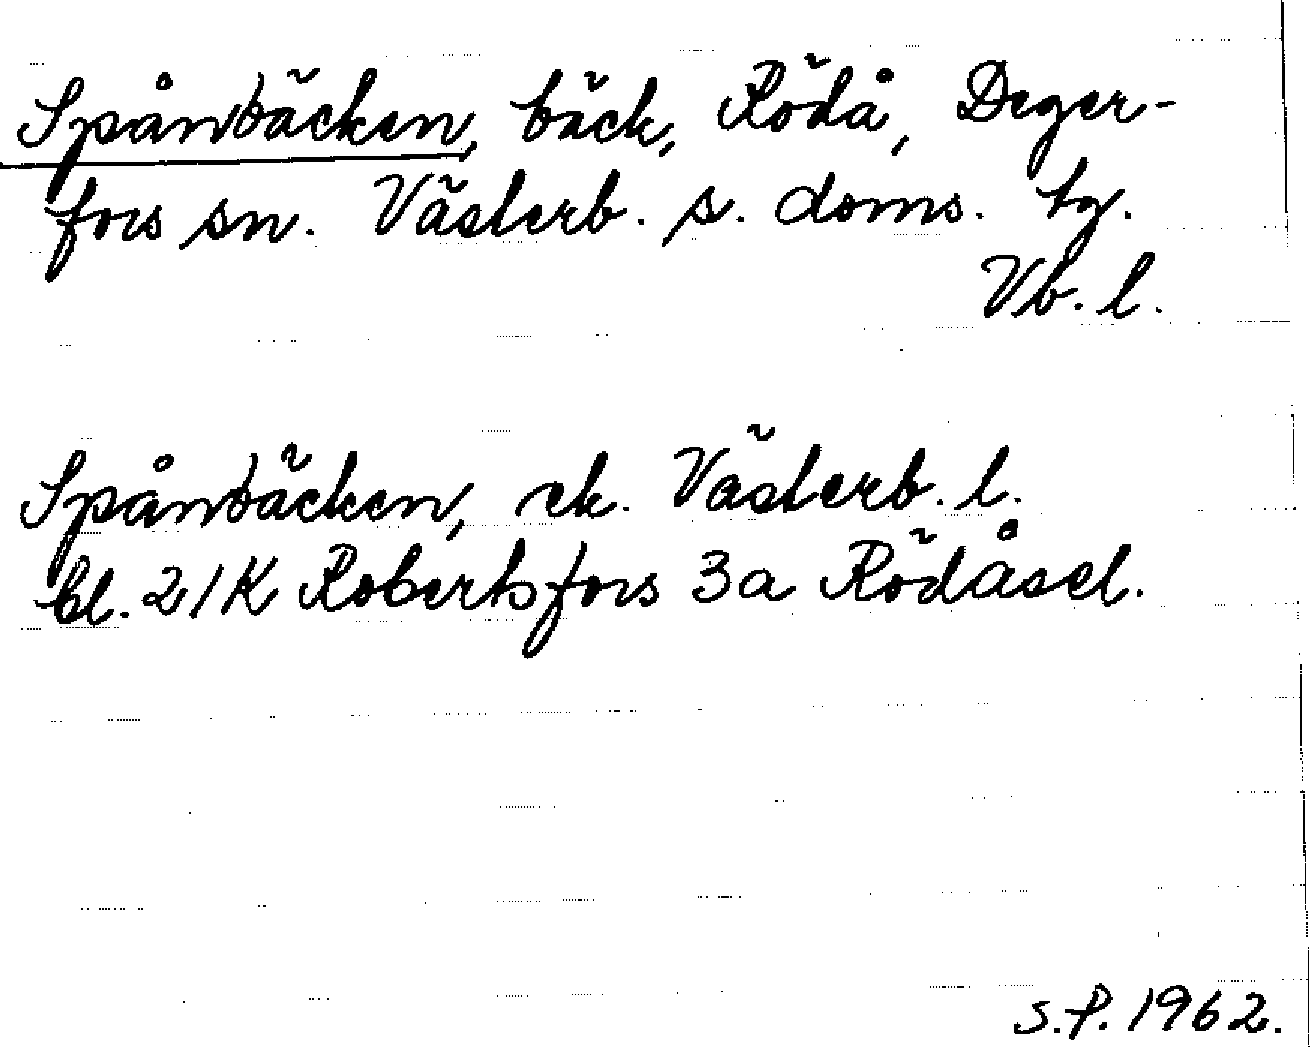 Spånbäcken, bäck, Rödå, Deger-
fors sn. Västerb. s. doms. tg.
Vb. l.
Spånbäcken, ek. Västerb. l.
bl. 21K Robertsfors 3a Rödåsel.
S.P. 1962.